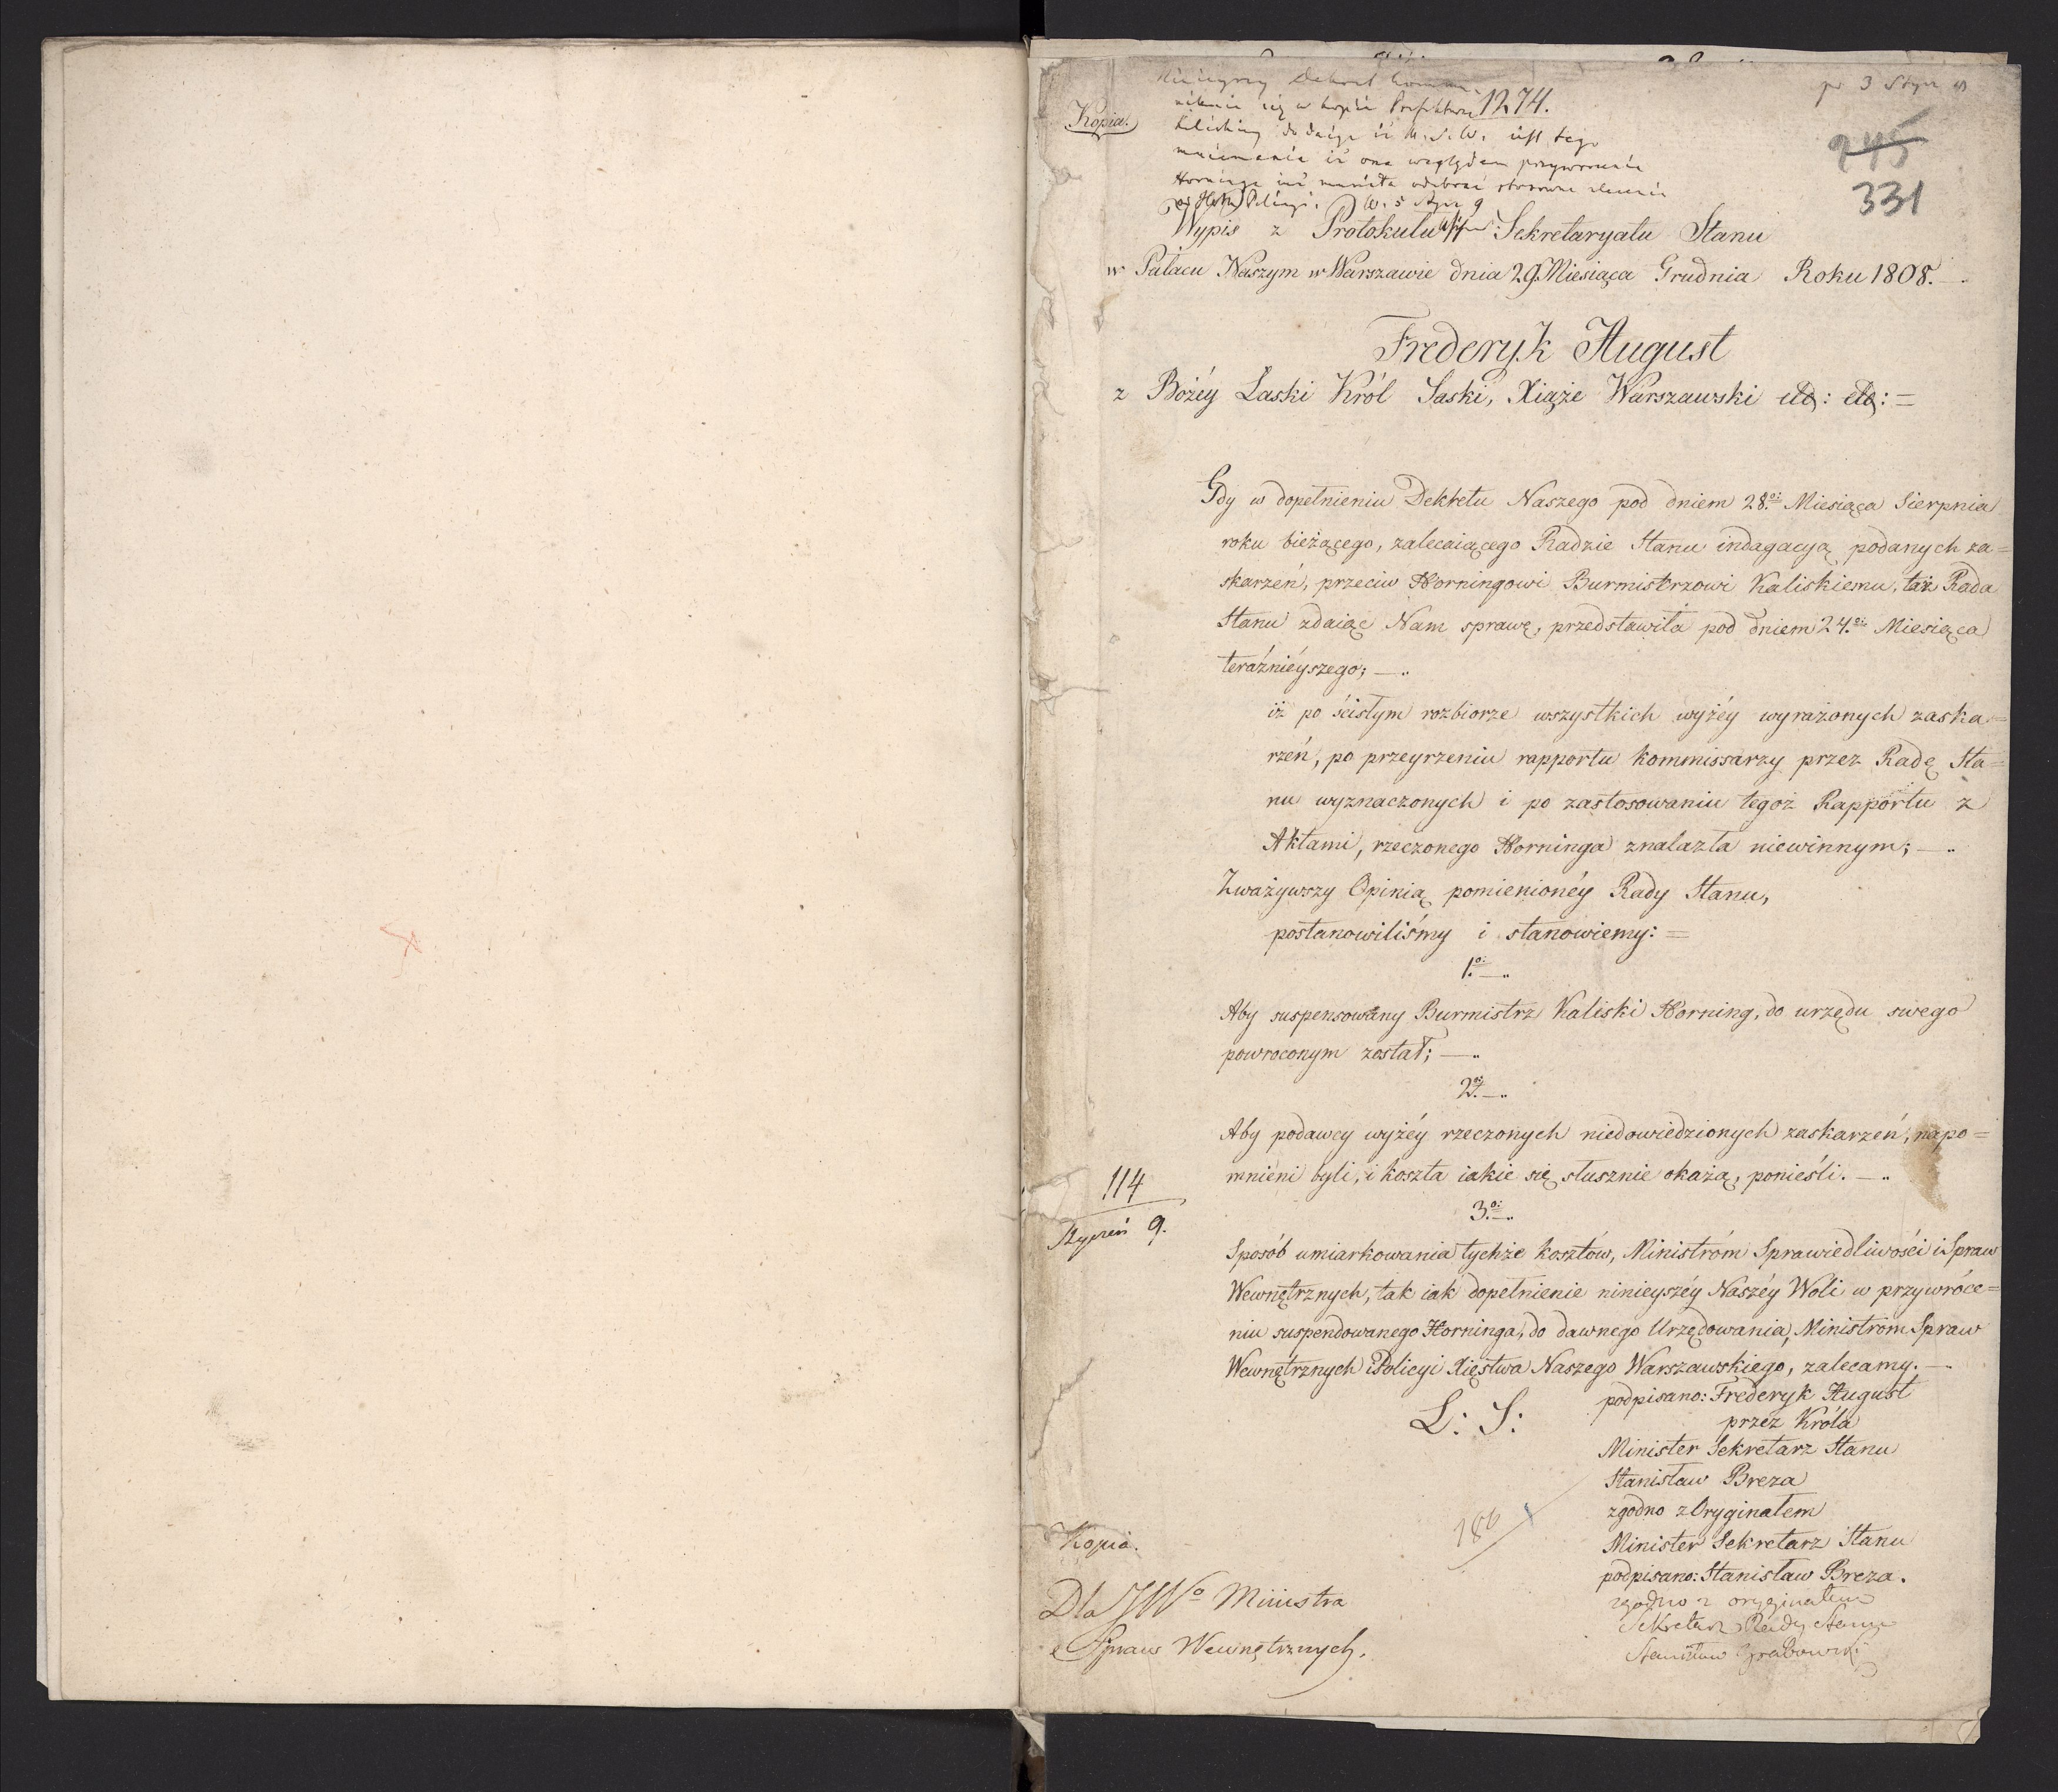 pr 3 Stycz 9
Kopia.
Ninieyszy Dekret
się w kopii Prefektowi 1274.
iż M. S. W. iest tego
mniemania iż ona względem przywrócenia
Horninga iuż odebrać stosowne zlecenie
W. 5 Stycz 9
245
331
Wypis z Protokułu Sekretaryatu Stanu
w Pałacu Naszym w Warszawie dnia 29. Miesiąca Grudnia Roku 1808.
Fryderyk August
z Bożéy Łaski Król Saski, Xiąże Warszawski etc: etc: =
Gdy w dopełnieniu Dekretu Naszego pod dniem 28.o: Miesiąca Sierpnia
roku bieżącego, zalecaiącego Radzie Stanu indagacyą podanych za=
skarżeń, przeciw Horningowi Burmistrzowi Kaliskiemu, taż Rada
Stanu zdaiąc Nam sprawę, przedstawiła pod dniem 24.o: Miesiąca
teraźnieyszego; —..
iż po ścisłym rozbiorze wszystkich wyżéy wyrażonych zaska=
rżeń, po przeyrzeniu rapportu Kommissarzy przez Radę Sta=
nu wyznaczonych i po zastosowaniu tegoż Rapportu z
Aktami, rzeczonego Horninga znalazła niewinnym; —..
Zważywszy Opinią pomienionéy Rady Stanu,
postanowiliśmy i stanowiemy: =
1.o: —..
Aby suspensowany Burmistrz Kaliski Horning, do urzędu swego
powroconym został; —..
2.o: —..
Aby podawcy wyżéy rzeczonych niedowiedzionych zaskarżeń, napo=
mnieni byli, i koszta iakie się słusznie okażą, ponieśli. —..
114
Styczeń 9.
3.o: —..
Sposób umiarkowania tychże kosztów, Ministróm Sprawiedliwości i Spraw
Wewnętrznych, tak iak dopełnienie ninieyszéy Naszéy Woli w przywróce=
niu suspendowanego Horninga, do dawnego Urzędowania, Ministrom Spraw
Wewnętrznych i Policyi Xięstwa Naszego Warszawskiego, zalecamy. —.
podpisano: Fryderyk August
L: S:
przez Króla
Minister Sekretarz Stanu
Stanisław Breza
zgodno z Oryginałem
Minister Sekretarz Stanu
podpisano: Stanisław Breza.
zgodno z oryginałem
Sekretarz Rady Stanu
Stanisław Grabowski
186
Kopia.
Dla JWo Ministra
Spraw Wewnętrznych.